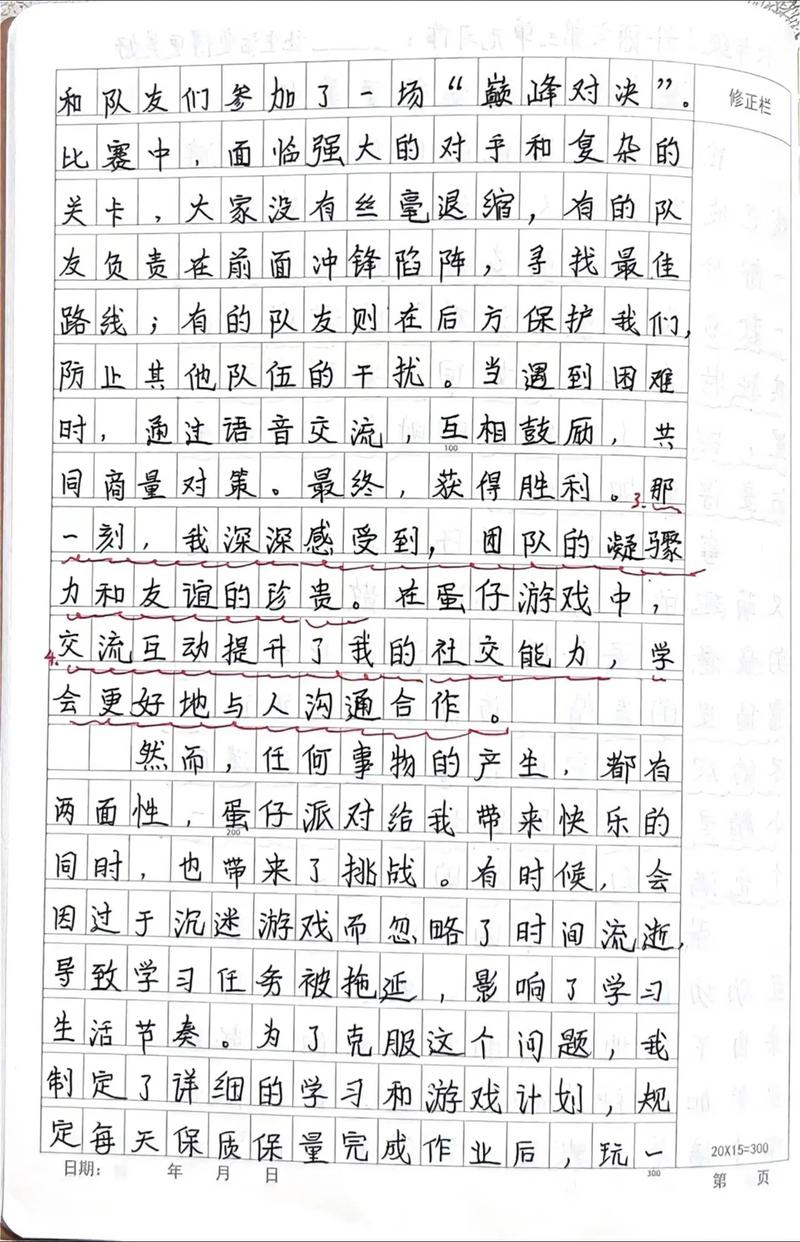 和队友们参加了一场“巅峰对决”。
修正栏
比赛中，面临强大的对手和复杂的
关卡，大家没有丝毫退缩，有的队
友负责在前面冲锋陷阵，寻找最佳
路线；有的队友则在后方保护我们，
防止其他队伍的干扰。当遇到困难
时，通过语音交流，互相鼓励，共
100
同商量对策。最终，获得胜利。3.那
一刻，我深深感受到，团队的凝骤
力和友谊的珍贵。在蛋仔游戏中，
4.交流互动提升了我的社交能力，学
会更好地与人沟通合作。
然而，任何事物的产生，都有
两面性，蛋仔派对给我带来快乐的
200
同时，也带来了挑战。有时候，会
因过于沉迷游戏而忽略了时间流逝，
导致学习任务被拖延，影响了学习
生活节奏。为了克服这个问题，我
制定了详细的学习和游戏计划，规
定每天保质保量完成作业后，玩一
20X15=300
300
日期： 年 月 日
第 页